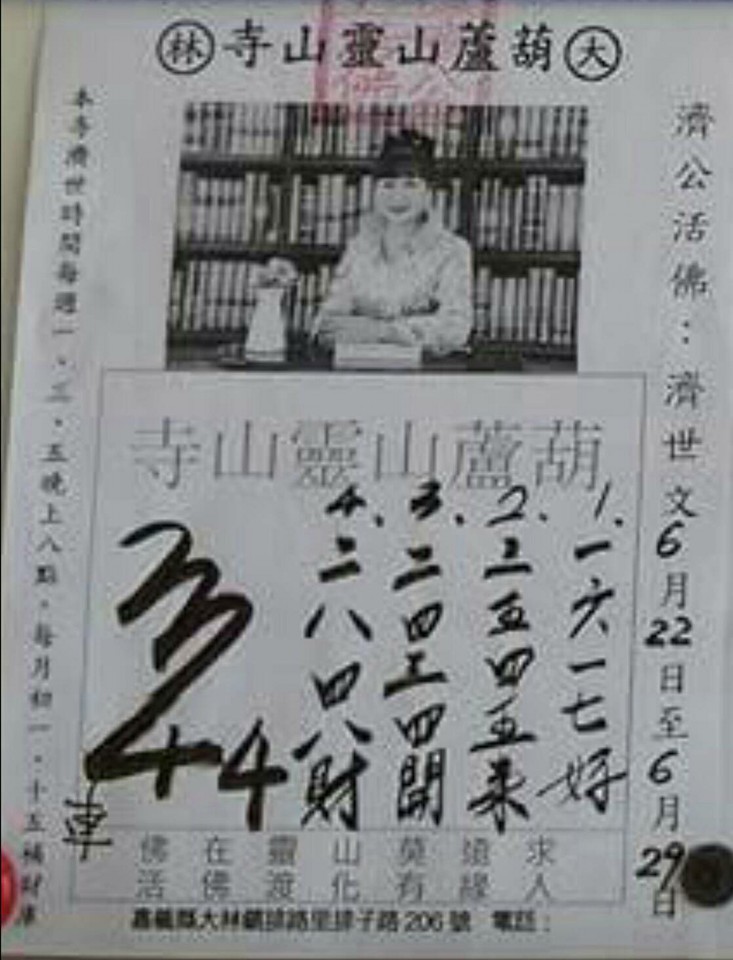 大葫蘆山靈山寺林
佛公
濟公活佛：濟世文6月22日至6月29日
葫蘆山靈山寺
1、一六一七好
2、二五四五来
3、二四三四開
4、二八四八財
44
車
本寺濟世時間每週一．三．五晚上八點，每月初一．十五補財庫
佛在靈山莫遠求
活佛渡化有緣人
嘉義縣大林鎮排路里排子路206號 電話：